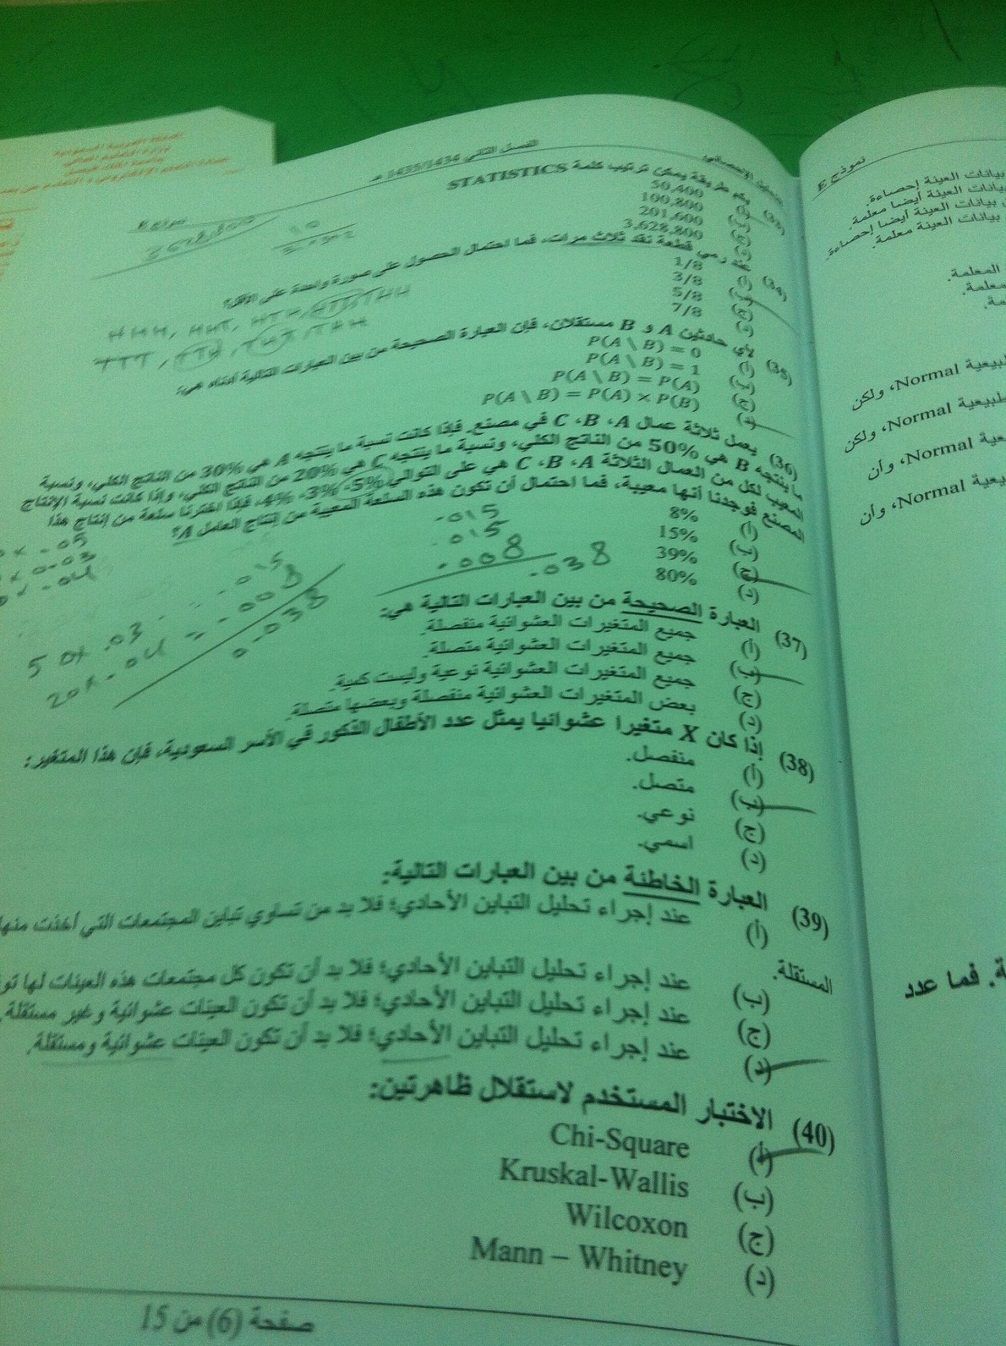 الفصل الثاني 1435/1434 هـ
نموذج E
(33) بكم طريقة يمكن ترتيب كلمة STATISTICS
(أ) 50,400
(ب) 100,800
(ج) 201,600
(د) 3,628,800
(34) عند رمي قطعة نقد ثلاث مرات، فما احتمال الحصول على صورة واحدة على الأقل؟
(أ) 1/8
(ب) 3/8
(ج) 5/8
(د) 7/8
HHH, HHT, HTH, HTT, THH
TTT, TTH, THT, THH
(35) لأي حادثين A و B مستقلان، فإن العبارة الصحيحة من بين العبارات التالية أدناه هي:
(أ) P(A \ B) = 0
(ب) P(A \ B) = 1
(ج) P(A \ B) = P(A)
(د) P(A \ B) = P(A) × P(B)
(36) يعمل ثلاثة عمال A، B، C في مصنع. فإذا كانت نسبة ما ينتجه A هي 30% من الناتج الكلي، ونسبة
ما ينتجه B هي 50% من الناتج الكلي، ونسبة ما ينتجه C هي 20% من الناتج الكلي، وإذا كانت نسبة الإنتاج
المعيب لكل من العمال الثلاثة A، B، C هي على التوالي 5%، 3%، 4%. فإذا اخترنا سلعة من إنتاج هذا
المصنع فوجدنا أنها معيبة، فما احتمال أن تكون هذه السلعة المعيبة من إنتاج العامل A؟
(أ) 8%
(ب) 15%
(ج) 39%
(د) 80%
.015
.015
.008
.038
× .05
× 0.03
× .04
50× .03 = .015
20× .04 = .008
0.038
(37) العبارة الصحيحة من بين العبارات التالية هي:
(أ) جميع المتغيرات العشوائية منفصلة.
(ب) جميع المتغيرات العشوائية متصلة.
(ج) جميع المتغيرات العشوائية نوعية وليست كمية.
(د) بعض المتغيرات العشوائية منفصلة وبعضها متصلة.
(38) إذا كان X متغيرا عشوائيا يمثل عدد الأطفال الذكور في الأسر السعودية، فإن هذا المتغير:
(أ) منفصل.
(ب) متصل.
(ج) نوعي.
(د) اسمي.
(39) العبارة الخاطئة من بين العبارات التالية:
(أ) عند إجراء تحليل التباين الأحادي؛ فلا بد من تساوي تباين المجتمعات التي أخذت منها
المستقلة.
(ب) عند إجراء تحليل التباين الأحادي؛ فلا بد أن تكون كل مجتمعات هذه العينات لها
(ج) عند إجراء تحليل التباين الأحادي؛ فلا بد أن تكون العينات عشوائية وغير مستقلة.
(د) عند إجراء تحليل التباين الأحادي؛ فلا بد أن تكون العينات عشوائية ومستقلة.
(40) الاختبار المستخدم لاستقلال ظاهرتين:
(أ) Chi-Square
(ب) Kruskal-Wallis
(ج) Wilcoxon
(د) Mann – Whitney
صفحة (6) من 15
نموذج E
بيانات العينة إحصاءة.
بيانات العينة أيضا معلمة.
بيانات العينة أيضا إحصاءة.
بيانات العينة معلمة.
المعلمة.
طبيعية Normal، ولكن
طبيعية Normal، ولكن
طبيعية Normal، وأن
طبيعية Normal، وأن
فما عدد